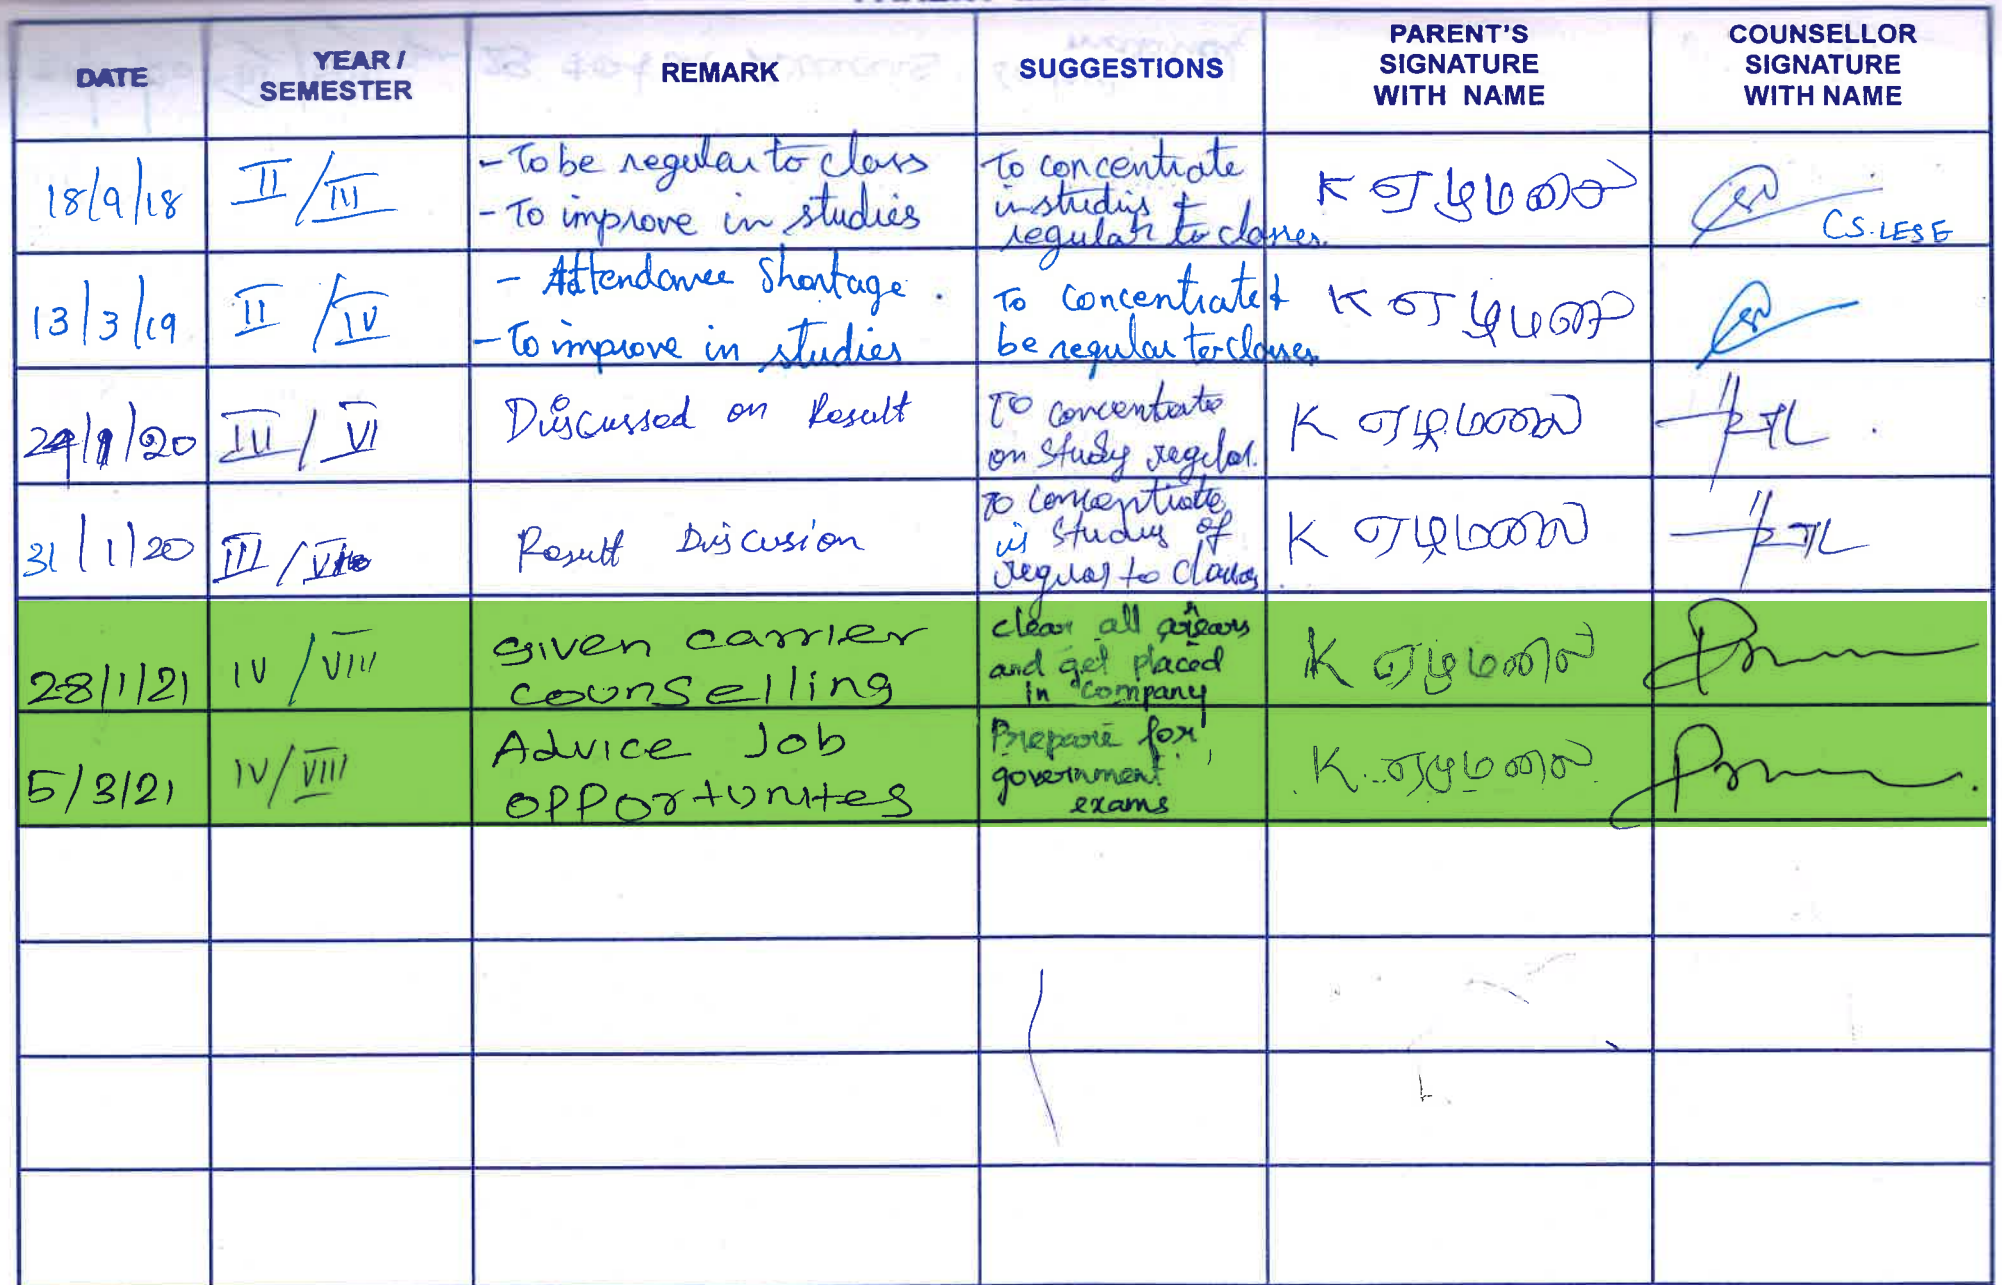 DATE
YEAR /
SEMESTER
REMARK
SUGGESTIONS
PARENT'S
SIGNATURE
WITH NAME
COUNSELLOR
SIGNATURE
WITH NAME
18/9/18
II / III
- To be regular to class
- To improve in studies
To concentrate
in studies &
regular to classes.
K ஏழுமலை
CS. LESE
13/3/19
II / IV
- Attendance Shortage.
- To improve in studies
To concentrate &
be regular to classes
K ஏழுமலை
/20
III / VI
Discussed on Result
To concentrate
on Study regular.
K ஏழுமலை
31/1/20
III /
Result Discusion
To concentrate
in Studies of
regular to classes
K ஏழுமலை
28/1/21
IV / VIII
given carrier
counselling
clear all arrears
and get placed
in company
K ஏழுமலை
5/3/21
IV / VIII
Advice Job
opportunites
Prepare for
government
exams
K. ஏழுமலை